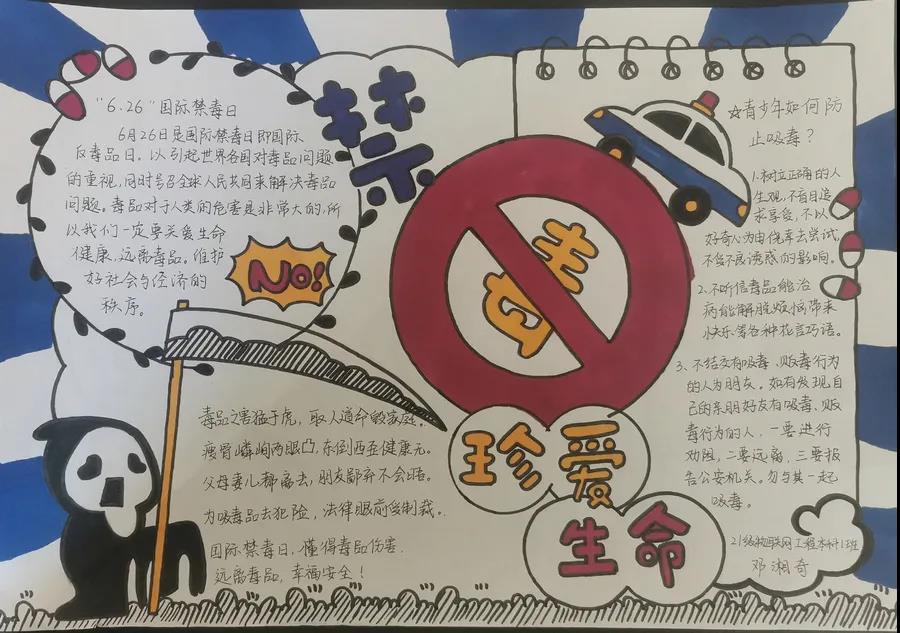 "6.26"国际禁毒日
6月26日是国际禁毒日即国际
反毒品日。以引起世界各国对毒品问题
的重视,同时号召全球人民共同来解决毒品
问题。毒品对于人类的危害是非常大的,所
以我们一定要关爱生命
健康,远离毒品。维护
好社会与经济的
秩序。
NO!
禁
毒
珍爱
生命
毒品之害猛于虎,取人道命毁家庭。
瘦骨嶙峋两眼凸,东倒西歪健康无。
父母妻儿都离去,朋友鄙弃不会晤。
为吸毒品去犯险,法律眼前受制裁。
国际禁毒日,懂得毒品伤害.
远离毒品,幸福安全!
☆青少年如何防
止吸毒?
1.树立正确的人
生观,不盲目追
求享受,不以
好奇心为由侥幸去尝试,
不受不良诱惑的影响。
2.不听信毒品能治
病能解脱烦恼带来
快乐等各种花言巧语。
3、不结交有吸毒、贩毒行为
的人为朋友。如有发现自
己的亲朋好友有吸毒、贩
毒行为的人,一要进行
劝阻,二要远离,三要报
告公安机关。勿与其一起
吸毒。
21级物联网工程本科1班
邓湘奇